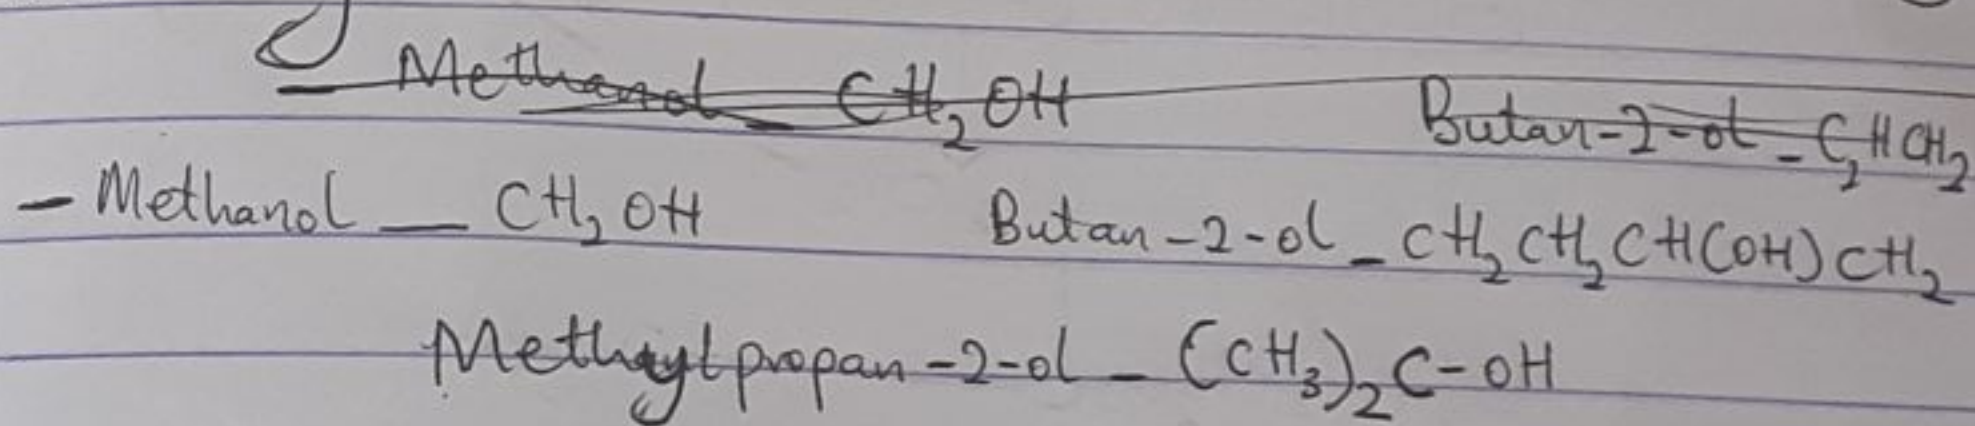 Methanol _ CH₂OH Butan-2-ol - C₂HCH₂
- Methanol _ CH₂OH Butan-2-ol - CH₂CH₂CH(OH)CH₂
Methylpropan-2-ol - (CH₃)₂C-OH